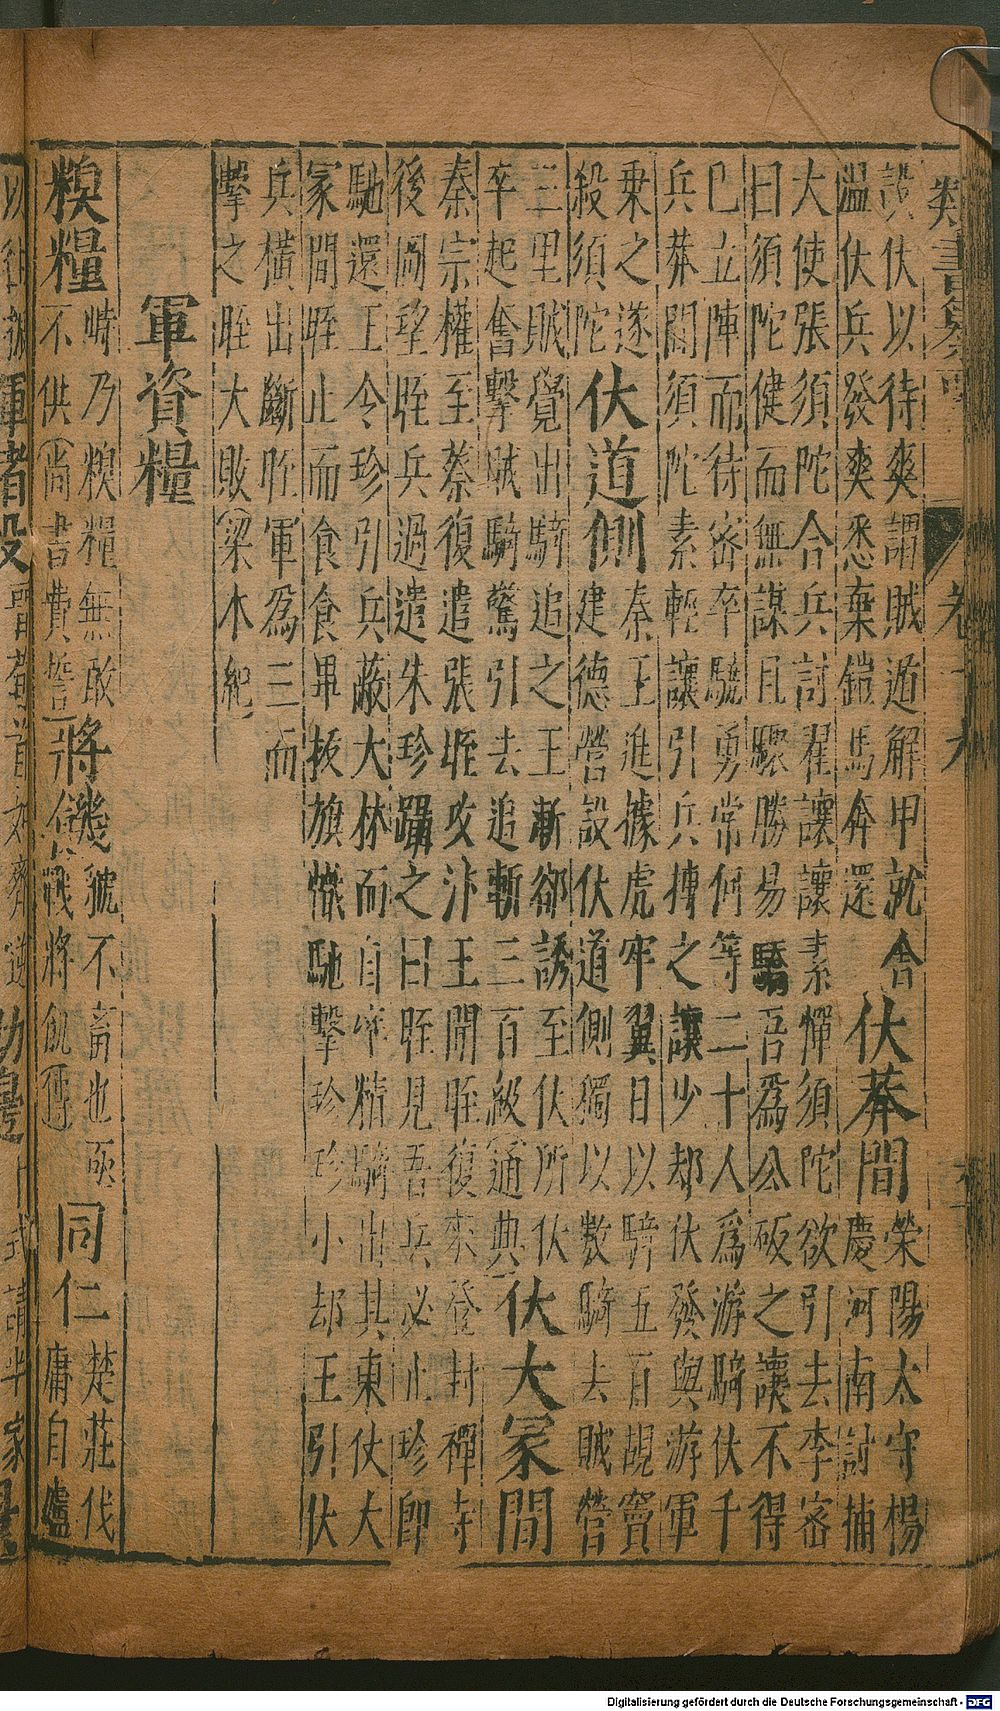 卷十九
設伏以待爽謂賊遁解甲就舍
溫伏兵發爽悉棄鎧馬奔還
伏莽間
榮陽太守楊
慶河南討捕
大使張須陀合兵討翟讓讓素憚須陀欲引去李密
曰須陀健而無謀且驟勝易驕吾為公破之讓不得
巳立陣而待密卒驍勇常何等二十人為游騎伏千
兵莽間須陀素輕讓引兵搏之讓少却伏發與游軍
乗之遂
殺須陀
伏道側
秦王進據虎牢翼日以騎五百覘竇
建德營設伏道側獨以數騎去賊營
三里賊覺出騎追之王漸却誘至伏所伏
卒起奮擊賊騎驚引去追斬三百級通典
伏大冡間
秦宗權至蔡復遣張晊攻汴王聞晊復來登封禪寺
後岡望晊兵過遣朱珍躡之曰晊見吾兵必止珍即
馳還王令珍引兵蔽大林而自率精騎出其東仗大
冡間晊止而食食畢拔旗幟馳擊珍珍小却王引伏
兵橫出斷晊軍為三而
擊之晊大敗梁木紀
軍資糧
糗糧
峙乃糗糧無敢
不供尚書費誓
將饑
虢不畜也亟
戰將飢
同仁
楚莊伐
庸自廬